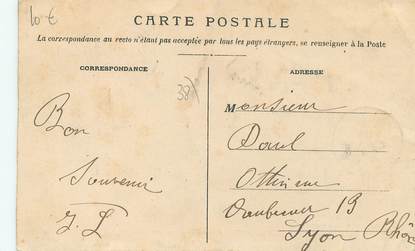 10 €
CARTE POSTALE
La correspondance au recto n'étant pas acceptée par tous les pays étrangers, se renseigner à la Poste
CORRESPONDANCE
ADRESSE
38
Bon
Souvenir
J. L
Monsieur
19
Lyon Rhône